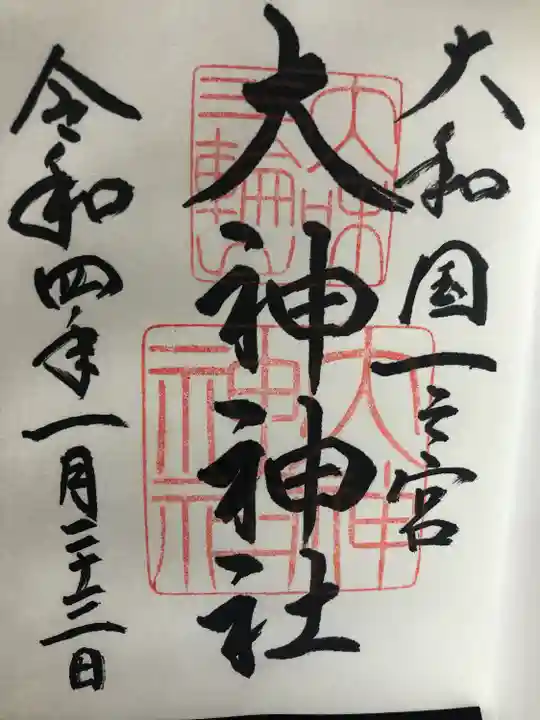 大和国一之宮
大神神社
令和四年一月二十二日
大神神社